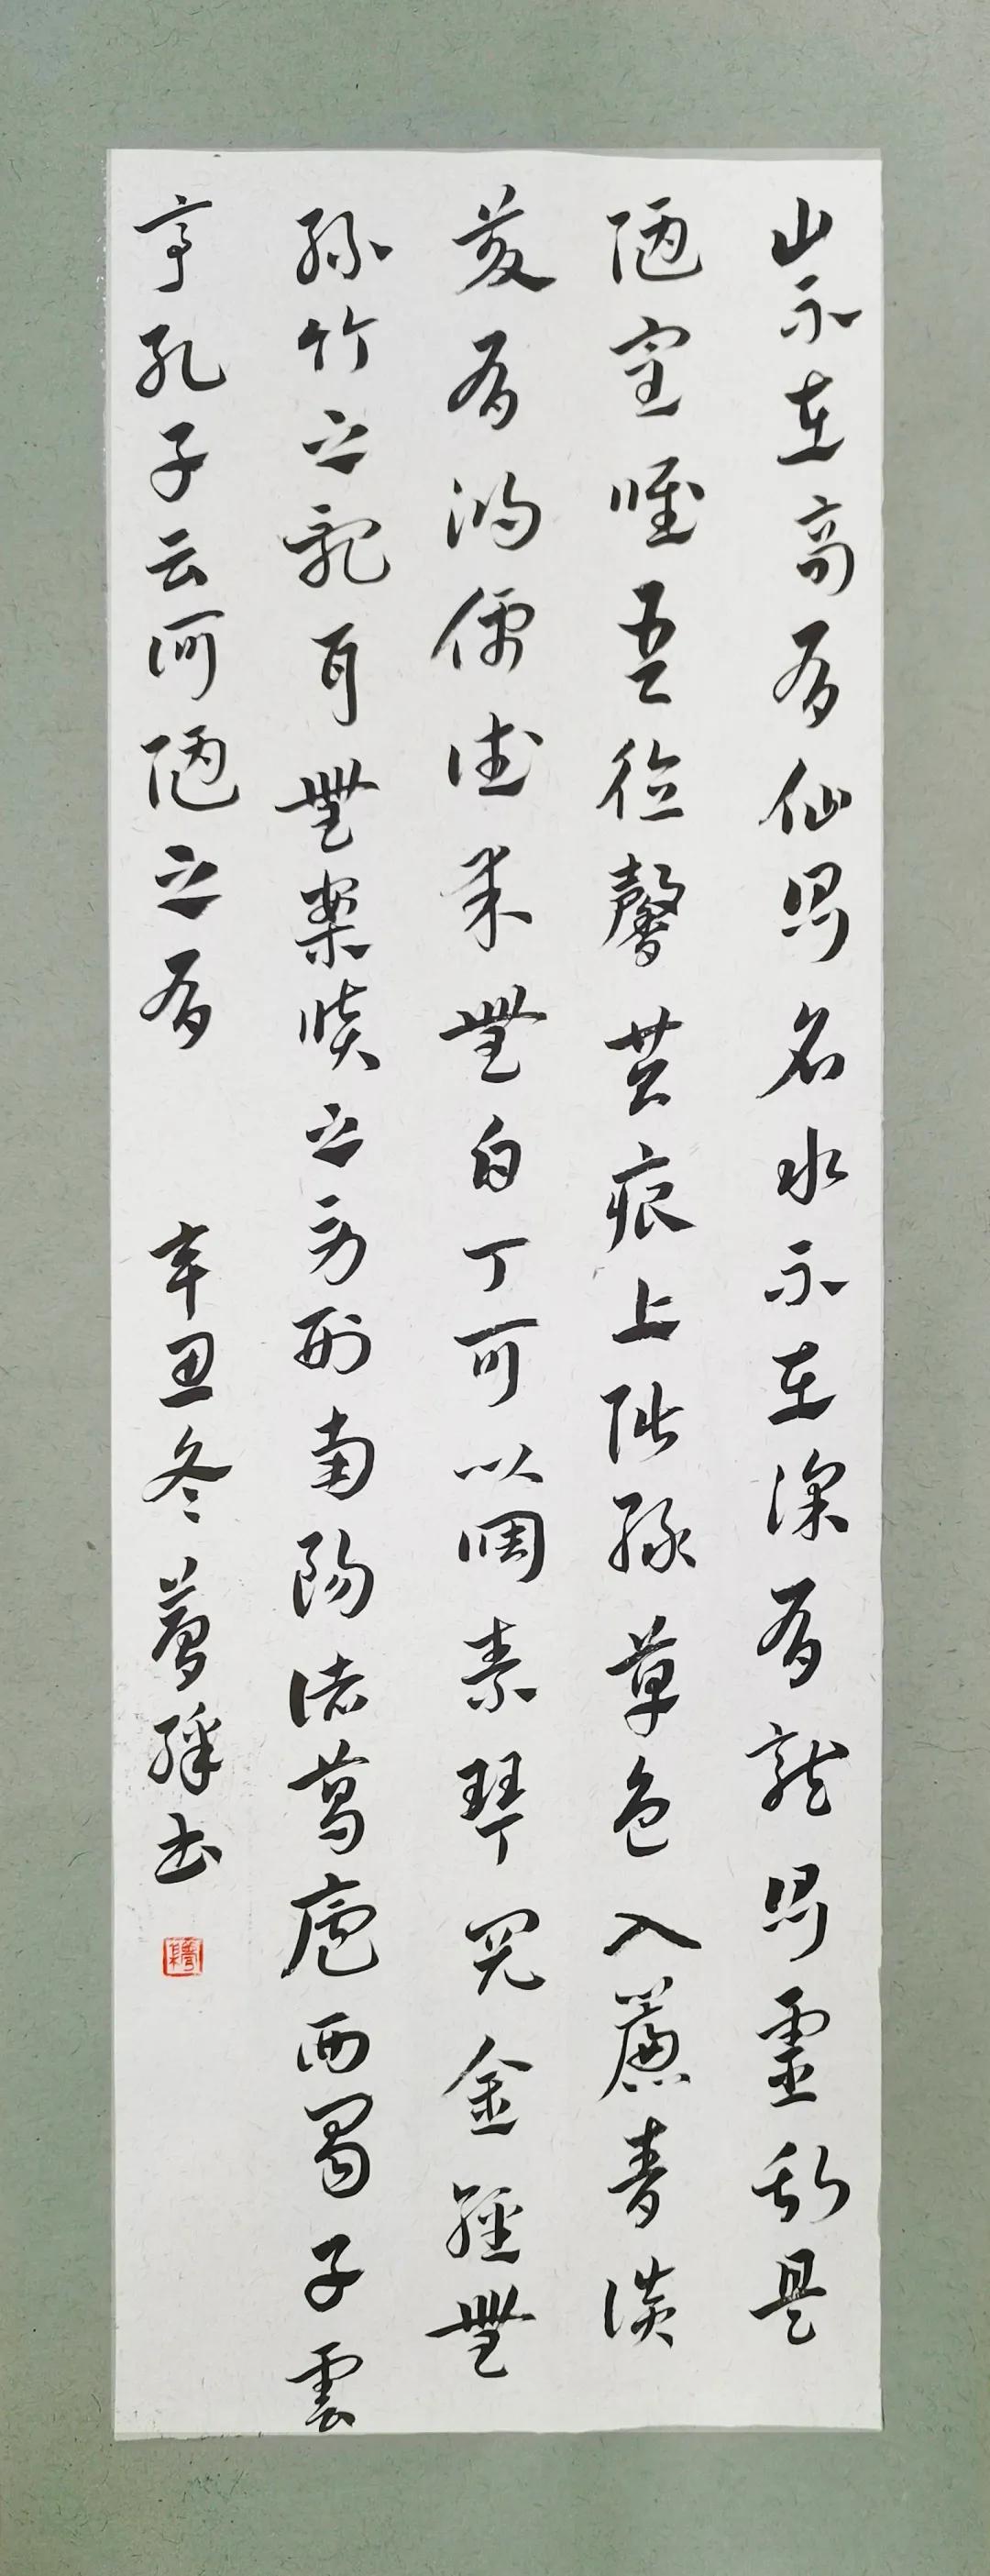 山不在高有仙則名水不在深有龍則靈斯是
陋室唯吾德馨苔痕上階綠草色入簾青談
笑有鴻儒往來無白丁可以調素琴閱金經無
絲竹之亂耳無案牘之勞形南陽諸葛廬西蜀子雲
亭孔子云何陋之有 辛丑冬夢書